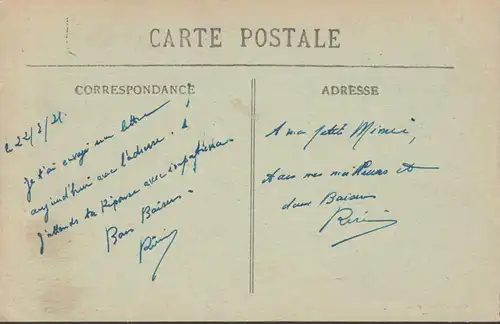 CARTE POSTALE
CORRESPONDANCE
ADRESSE
Le 22/2/21.
Je t'ai envoyé une lettre
aujourd'hui avec l'adresse. !
J'attends ta Réponse avec impatience
Bons Baisers.
Riri
A ma petite Mimi,
avec mes meilleurs et
doux Baisers
Riri